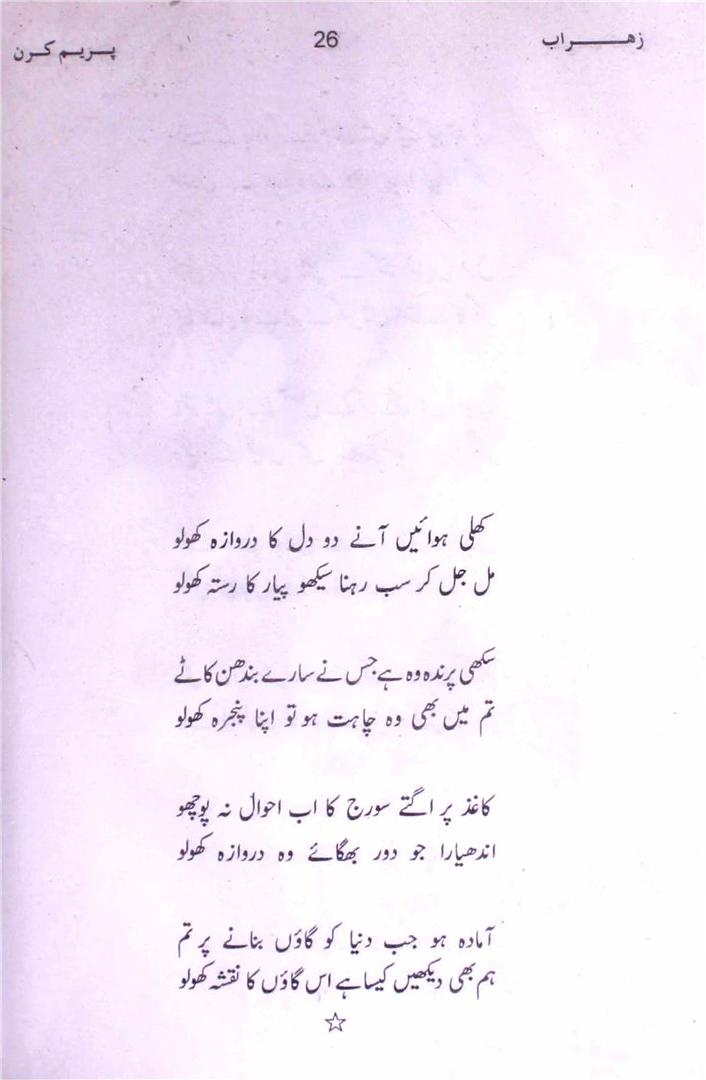 زھراب 26 پریم کرن
کھلی ہوائیں آنے دو دل کا دروازہ کھولو
مل جل کر سب رہنا سیکھو پیار کا رستہ کھولو
سکھی پرندہ وہ ہے جس نے سارے بندھن کاٹے
تم میں بھی وہ چاہت ہو تو اپنا پنجرہ کھولو
کاغذ پر اگتے سورج کا اب احوال نہ پوچھو
اندھیارا جو دور بھگائے وہ دروازہ کھولو
آمادہ ہو جب دنیا کو گاؤں بنانے پر تم
ہم بھی دیکھیں کیسا ہے اس گاؤں کا نقشہ کھولو
☆